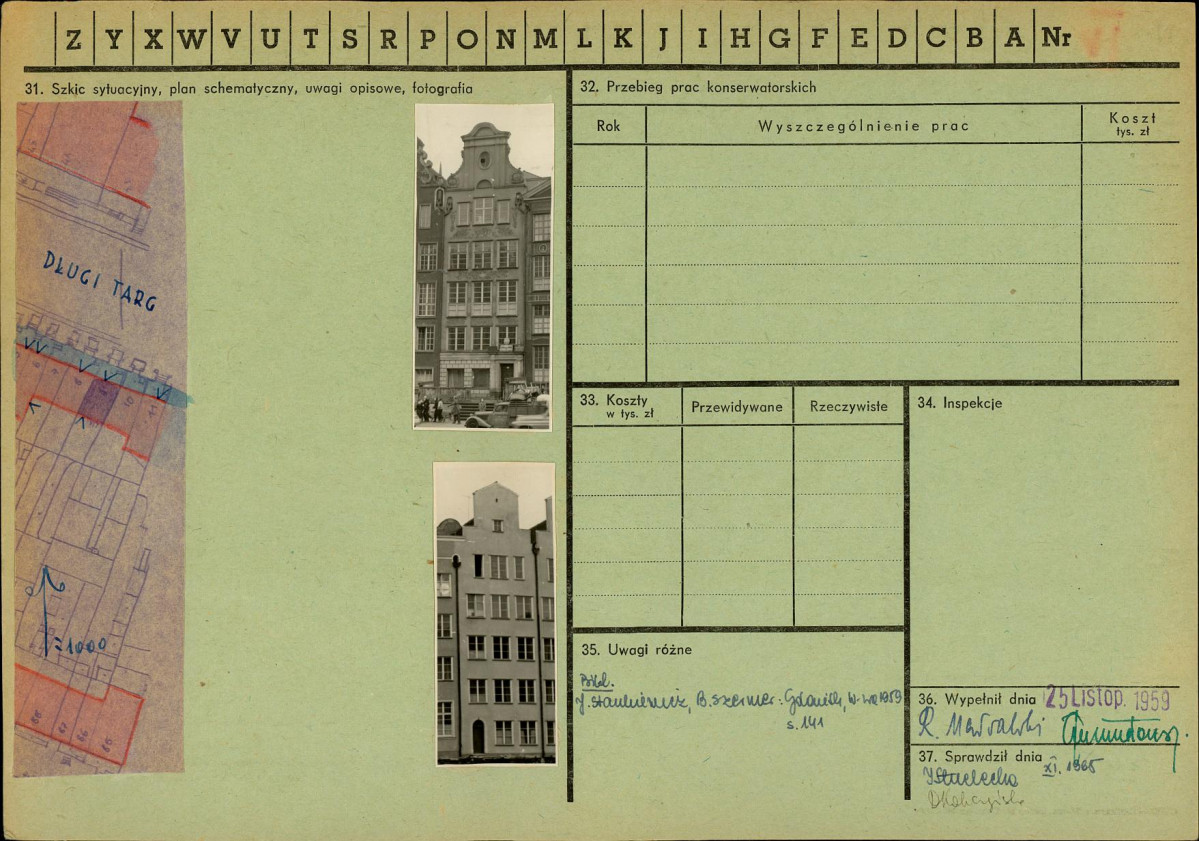 Z Y X W V U T S R P O N M L K J I H G F E D C B A Nr
31. Szkic sytuacyjny, plan schematyczny, uwagi opisowe, fotografia
DŁUGI TARG
10
11
1:1000
68
67
66
65
32. Przebieg prac konserwatorskich
Rok
Wyszczególnienie prac
Koszt
tys. zł
33. Koszty
w tys. zł
Przewidywane
Rzeczywiste
34. Inspekcje
35. Uwagi różne
Bibl.
J. Stankiewicz, B. Szermer: Gdańsk, W-wa 1959
s. 141
36. Wypełnił dnia 25 Listop. 1959
R. Massalski
37. Sprawdził dnia
XI. 1965